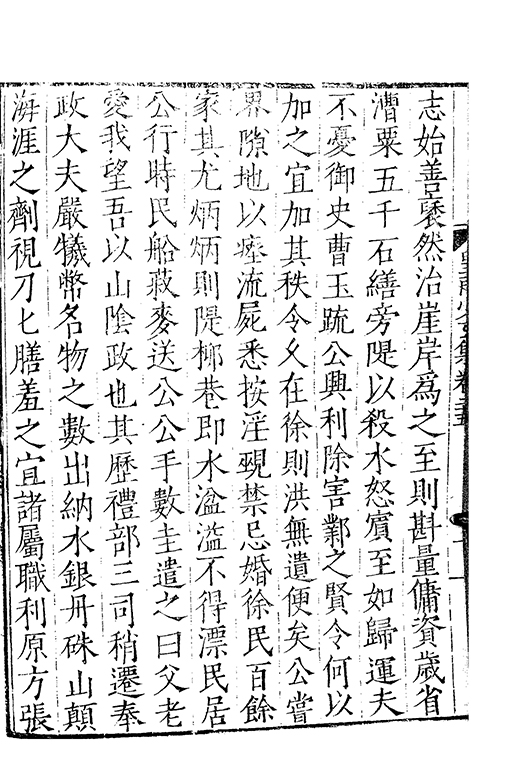 志始善褎然治崖岸爲之至則斟量傭資歲省
漕粟五千石繕旁隄以殺水怒賓至如歸運夫
不憂御史曹玉疏公興利除害鄴之賢令何以
加之宜加其秩令乆在徐則洪無遺便矣公嘗
界隙地以瘞流屍悉按淫覡禁忌婚徐民百餘
家其尤炳炳則隄栁巷即水湓溢不得漂民居
公行時民船菽麥送公公手數圭遣之曰父老
愛我望吾以山陰政也其歷禮部三司稍遷奉
政大夫嚴犧幣名物之數出納水銀丹硃山顛
海涯之劑視刀匕膳羞之宜諸屬職利原方張